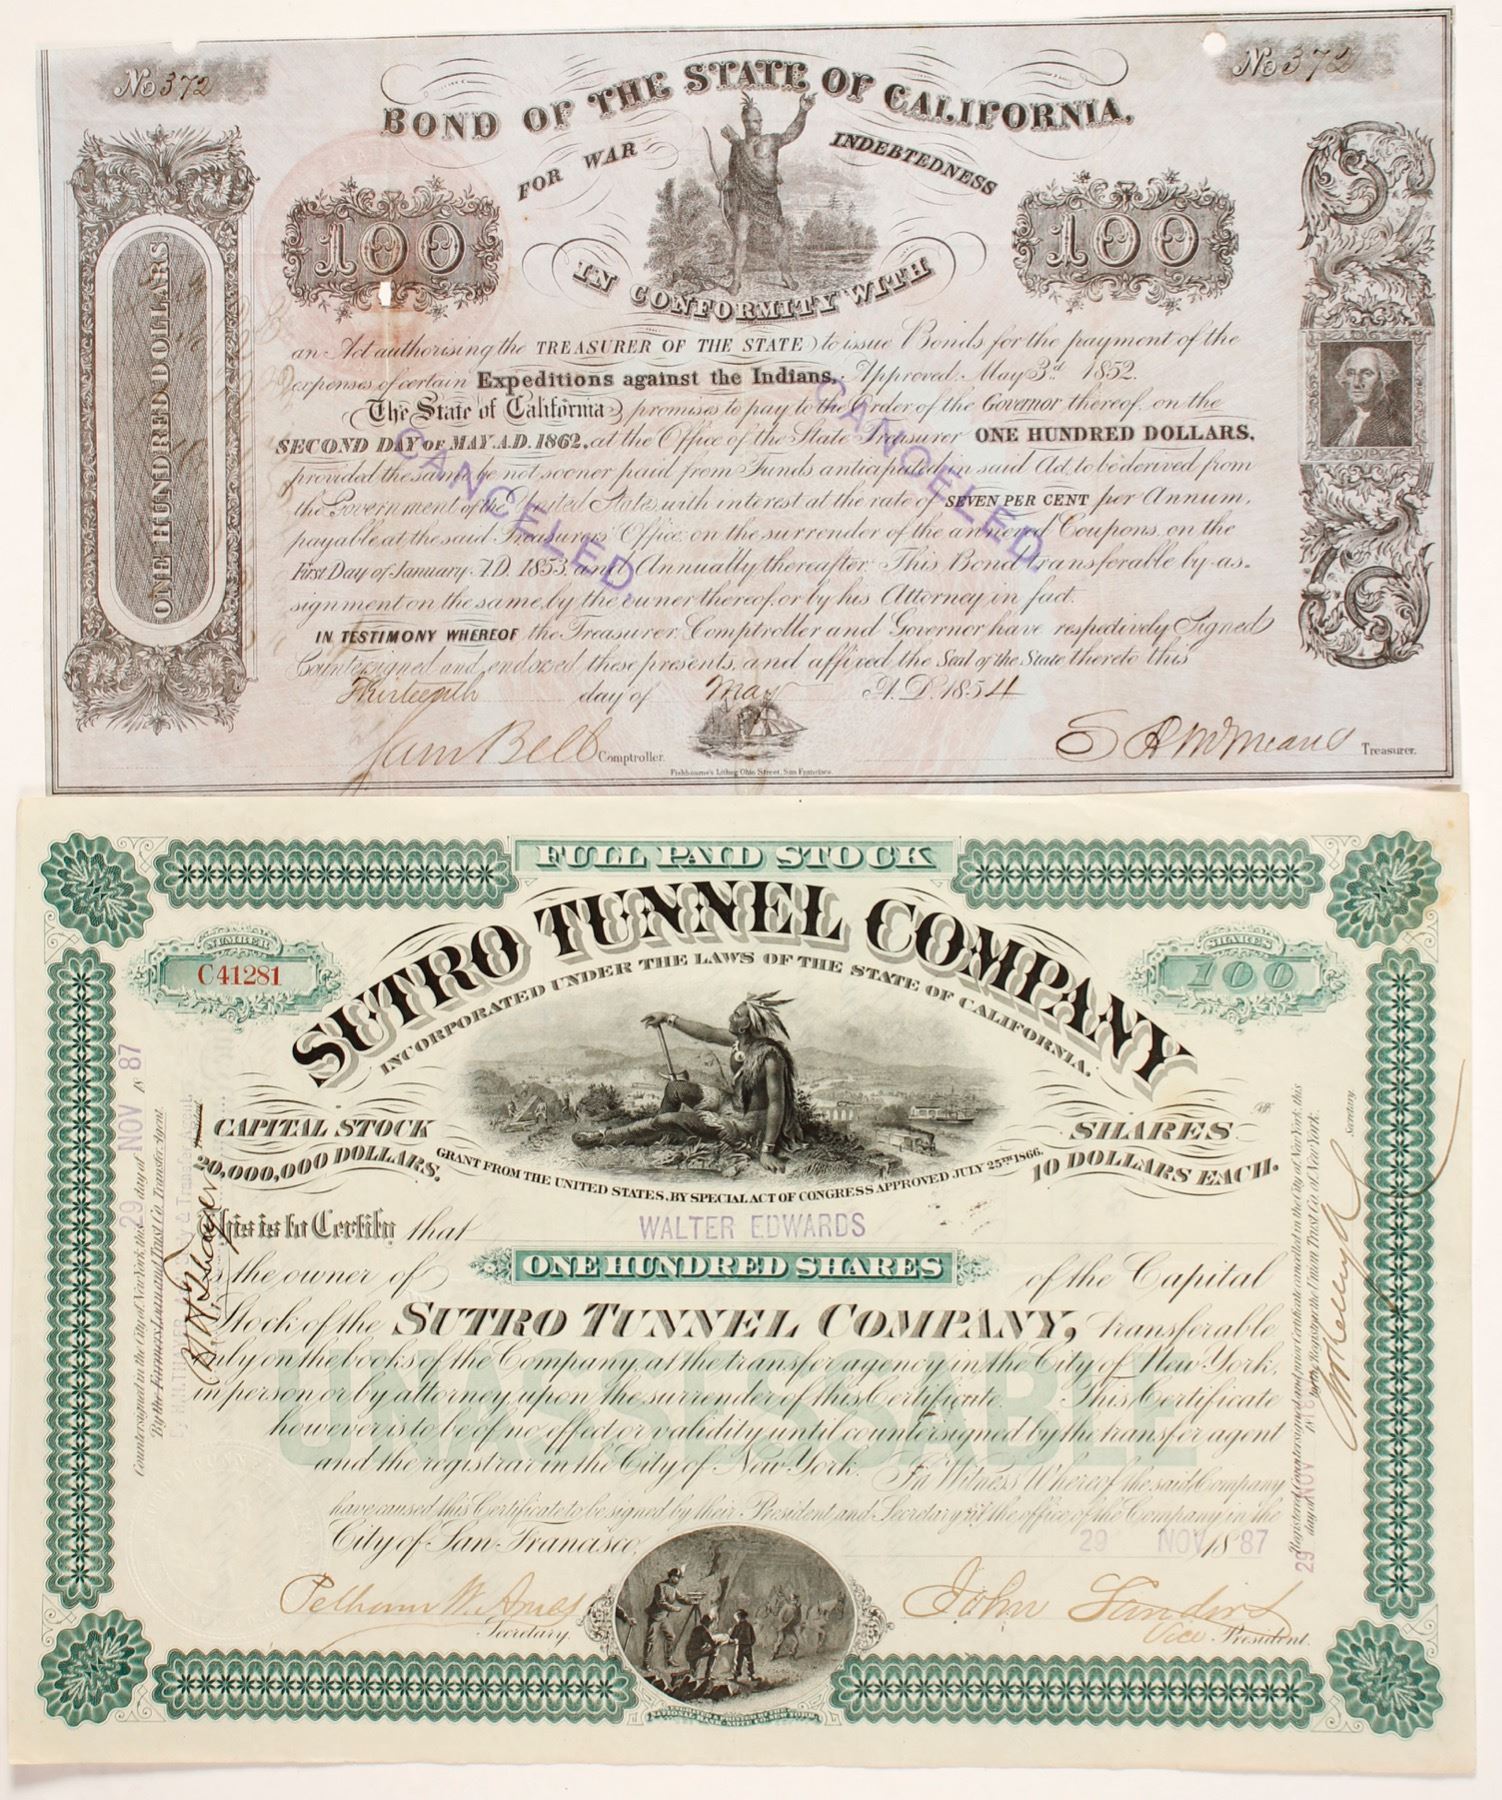 No 372
No 372
BOND OF THE STATE OF CALIFORNIA,
FOR WAR INDEBTEDNESS
100
100
IN CONFORMITY WITH
ONE HUNDRED DOLLARS
an Act authorising the TREASURER OF THE STATE to issue Bonds for the payment of the
expenses of certain Expeditions against the Indians, Approved May 3d 1852.
The State of California promises to pay to the Order of the Governor thereof, on the
SECOND DAY OF MAY A.D. 1862, at the Office of the State Treasurer ONE HUNDRED DOLLARS,
provided the same be not sooner paid from Funds anticipated in said Act, to be derived from
the Government of the United States, with interest at the rate of SEVEN PER CENT per Annum,
payable at the said Treasurers' Office, on the surrender of the annexed Coupons, on the
First Day of January A.D. 1853, and Annually thereafter. This Bond transferable by as-
signment on the same, by the owner thereof, or by his Attorney in fact.
IN TESTIMONY WHEREOF the Treasurer, Comptroller and Governor have respectively Signed
Countersigned and endorsed these presents, and affixed the Seal of the State thereto this
Thirteenth day of May A.D. 1854
CANCELED.
CANCELED.
Sam Bell Comptroller.
S A McMeans Treasurer.
Fishbourne's Lithog Ohio Street, San Francisco.
FULL PAID STOCK
NUMBER
C41281
SHARES
100
SUTRO TUNNEL COMPANY
INCORPORATED UNDER THE LAWS OF THE STATE OF CALIFORNIA.
CAPITAL STOCK
20,000,000 DOLLARS.
SHARES
10 DOLLARS EACH.
GRANT FROM THE UNITED STATES, BY SPECIAL ACT OF CONGRESS APPROVED JULY 25TH 1866.
This is to Certify that WALTER EDWARDS
is the owner of ONE HUNDRED SHARES of the Capital
Stock of the SUTRO TUNNEL COMPANY, transferable
only on the books of the Company, at the transfer agency, in the City of New York,
in person or by attorney, upon the surrender of this Certificate. This Certificate
however is to be of no effect or validity until countersigned by the transfer agent
and the registrar in the City of New York. In Witness Whereof the said Company
have caused this Certificate to be signed by their President and Secretary at the office of the Company in the
City of San Francisco, 29 NOV 1887
UNASSESSABLE
Pelham W. Ames
Secretary.
John Landers
Vice President.
Countersigned in the City of New York, this 29 day of NOV 1887
By the Farmers Loan and Trust Co. Transfer Agent
Registered (countersigned and prior Certificate cancelled) in the City of New York, this
29 day of NOV 18
by the Registrar the Union Trust Co. of New York.
Secretary